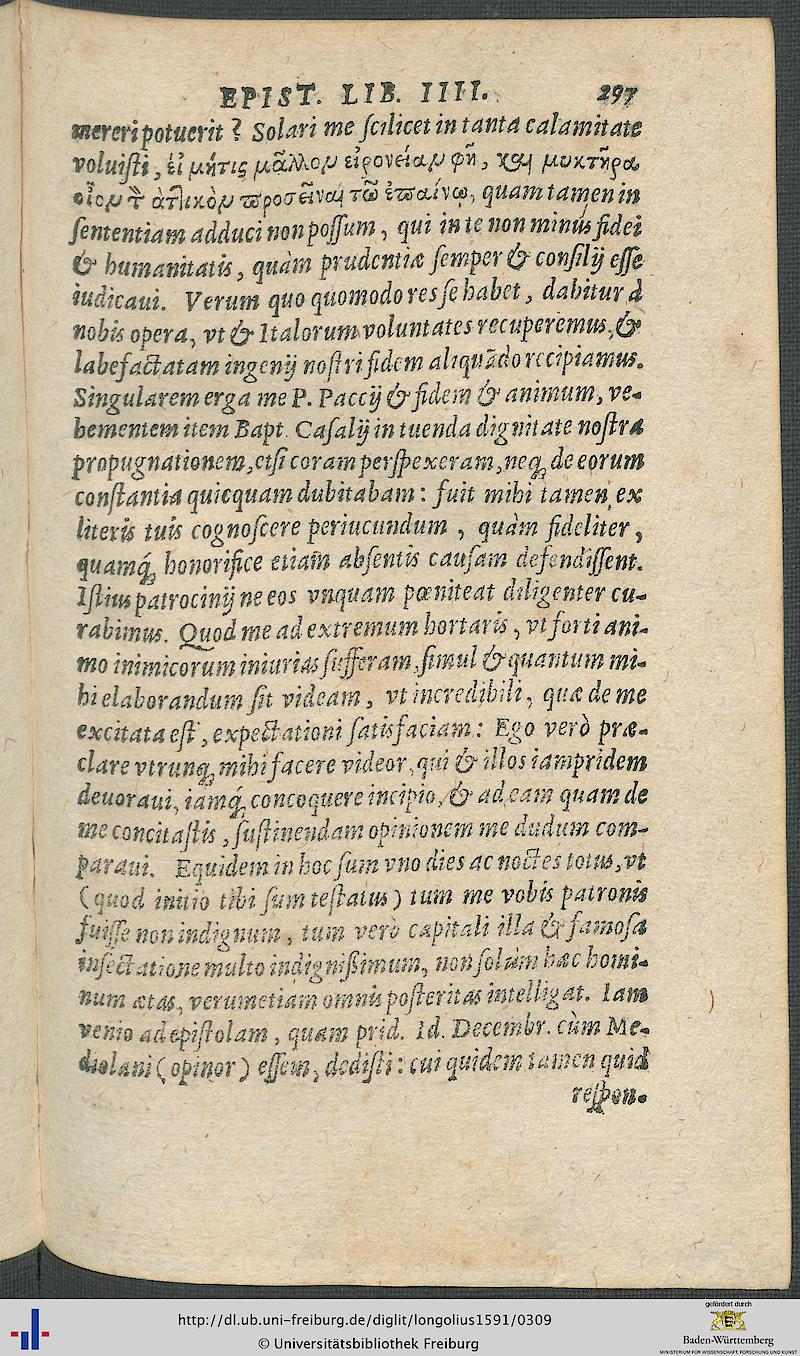 EPIST. LIB. IIII. 297
mereri potuerit? Solari me scilicet in tanta calamitate
voluisti, εἰ μήτις μᾶλλον εἰρονείαν φῆ, καὶ μυκτῆρα
οἷον τ̀ ἀτλικὸν προσεῖναι τῶ ἐπαίνῳ, quam tamen in
sententiam adduci non possum, qui in te non minus fidei
& humanitatis, quàm prudentiæ semper & consilij esse
iudicaui. Verum quo quomodo res se habet, dabitur à
nobis opera, vt & Italorum voluntates recuperemus, &
labefactatam ingenij nostri fidem aliquādo recipiamus.
Singularem erga me P. Paccij & fidem & animum, ve-
hementem item Bapt. Casalij in tuenda dignitate nostra
propugnationem, etsi coram perspexeram, neq; de eorum
constantia quicquam dubitabam: fuit mihi tamen ex
literis tuis cognoscere periucundum, quàm fideliter,
quamq́; honorifice etiam absentis causam defendissent.
Istius patrocinij ne eos vnquam pœniteat diligenter cu-
rabimus. Quod me ad extremum hortaris, vt forti ani-
mo inimicorum iniurias sufferam, simul & quantum mi-
hi elaborandum sit videam, vt incredibili, quæ de me
excitata est, expectationi satisfaciam: Ego verò præ-
clare vtrunq; mihi facere videor, qui & illos iampridem
deuoraui, iamq́; concoquere incipio, & ad eam quam de
me concitastis, sustinendam opinionem me dudum com-
paraui. Equidem in hoc sum vno dies ac noctes totus, vt
(quod initio tibi sum testatus) tum me vobis patronis
fuisse non indignum, tum verò capitali illa & famosa
insectatione multo indignissimum, non solùm hæc homi-
num ætas, verumetiam omnis posteritas intelligat. Iam
venio ad epistolam, quam prid. Id. Decembr. cùm Me-
diolani (opinor) essem, dedisti: cui quidem tamen quid
respon-
http://dl.ub.uni-freiburg.de/diglit/longolius1591/0309
© Universitätsbibliothek Freiburg
gefördert durch
Baden-Württemberg
MINISTERIUM FÜR WISSENSCHAFT, FORSCHUNG UND KUNST